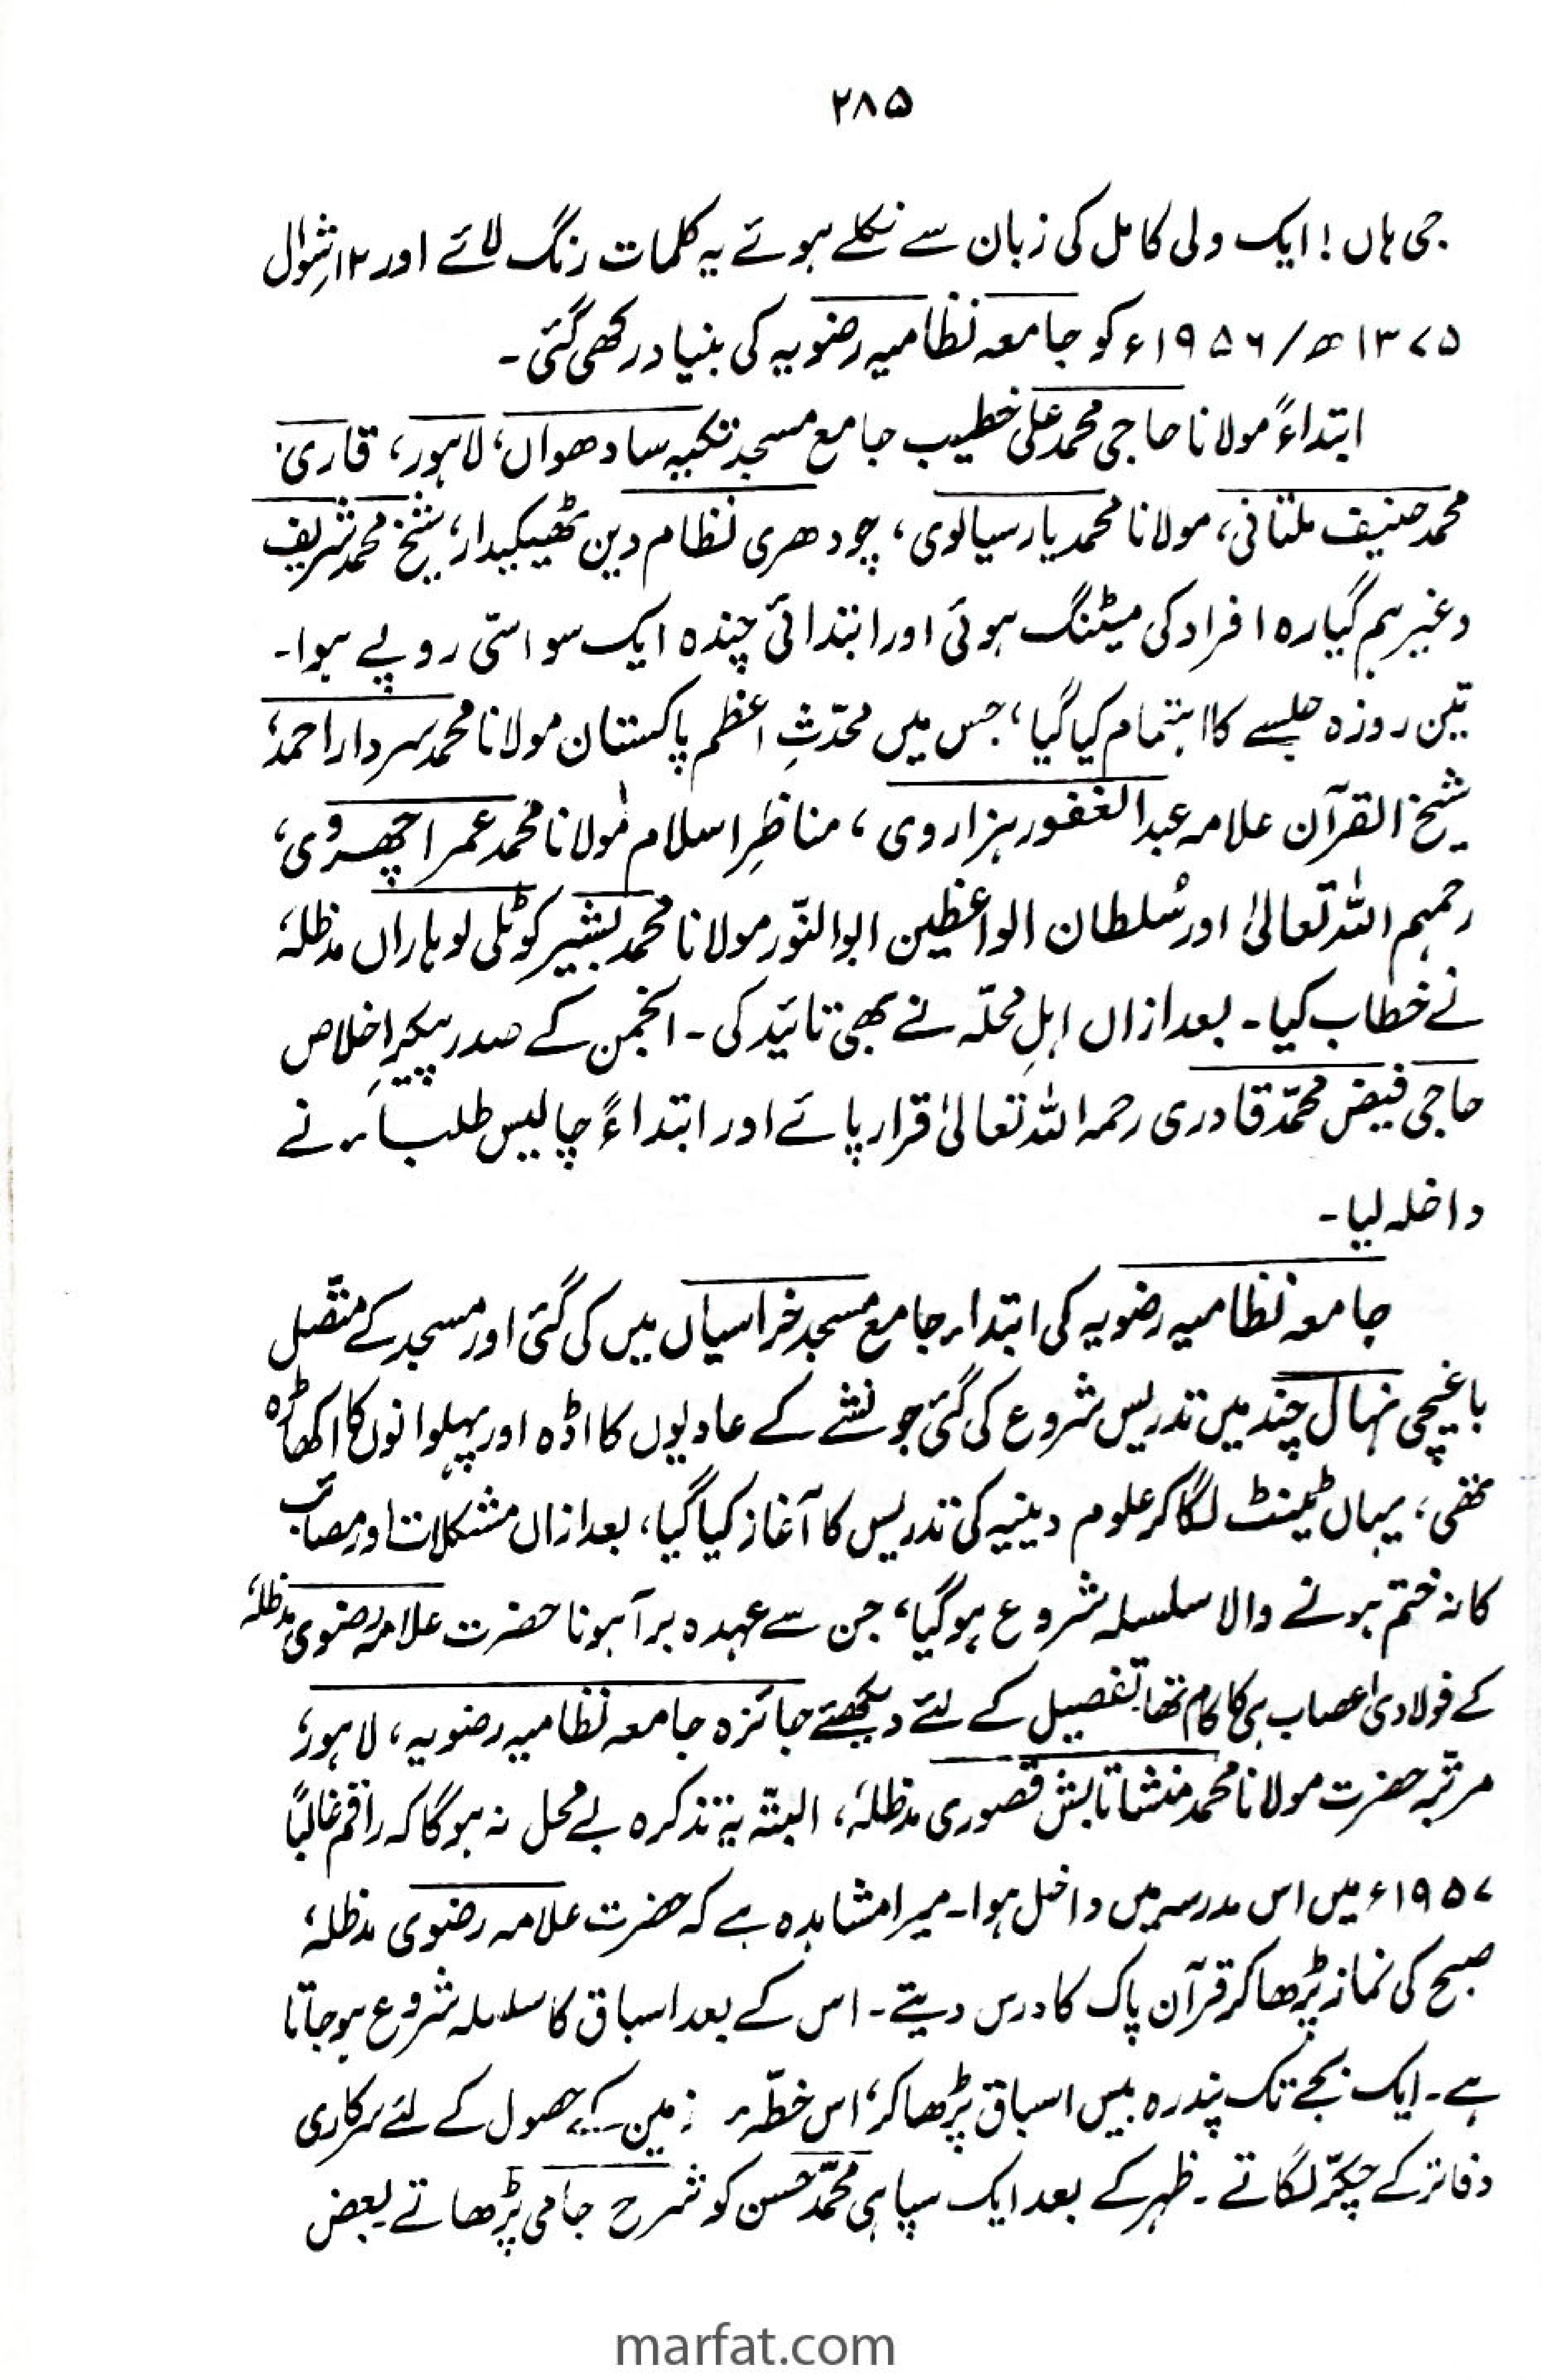 ۲۸۵
جی ہاں! ایک ولی کامل کی زبان سے نکلے ہوئے یہ کلمات رنگ لائے اور ۱۲؍شوال
۱۳۷۵ھ/۱۹۵۶ء کو جامعہ نظامیہ رضویہ کی بنیاد رکھی گئی۔
ابتداءً مولانا حاجی محمد علی خطیب جامع مسجد تکیہ سادھواں، لاہور، قاری
محمد حنیف ملتانی، مولانا محمد یار سیالوی، چودھری نظام دین ٹھیکیدار، شیخ محمد شریف
وغیرہم گیارہ افراد کی میٹنگ ہوئی اور ابتدائی چندہ ایک سو اسّی روپے ہوا۔
تین روزہ جلسے کا اہتمام کیا گیا، جس میں محدّثِ اعظم پاکستان مولانا محمد سردار احمد،
شیخ القرآن علامہ عبدالغفور ہزاروی، مناظرِ اسلام مولانا محمد عمر اچھروی،
رحمہم اللہ تعالیٰ اور سُلطان الواعظین ابوالنّور مولانا محمد بشیر کوٹلی لوہاراں مدظلہٗ
نے خطاب کیا۔ بعد ازاں اہلِ محلّہ نے بھی تائید کی۔ انجمن کے صدر پیکرِ اخلاص
حاجی فیض محمّد قادری رحمہ اللہ تعالیٰ قرار پائے اور ابتداءً چالیس طلباء نے
داخلہ لیا۔
جامعہ نظامیہ رضویہ کی ابتداء جامع مسجد خراسیاں میں کی گئی اور مسجد کے متّصل
باغیچی نہال چند میں تدریس شروع کی گئی جو نشے کے عادیوں کا اڈہ اور پہلوانوں کا اکھاڑہ
تھی، یہاں ٹینٹ لگا کر علوم دینیہ کی تدریس کا آغاز کیا گیا، بعد ازاں مشکلات اور مصائب
کا نہ ختم ہونے والا سلسلہ شروع ہو گیا، جن سے عہدہ برآ ہونا حضرت علامہ رضوی مدظلہٗ
کے فولادی اعصاب ہی کا کام تھا۔ تفصیل کے لئے دیکھئے جائزہ جامعہ نظامیہ رضویہ، لاہور،
مرتّبہ حضرت مولانا محمد منشا تابش قصوری مدظلہٗ، البتّہ یہ تذکرہ بے محل نہ ہوگا کہ راقم غالباً
۱۹۵۷ء میں اس مدرسہ میں داخل ہوا۔ میرا مشاہدہ ہے کہ حضرت علامہ رضوی مدظلہٗ
صبح کی نماز پڑھا کر قرآن پاک کا درس دیتے۔ اس کے بعد اسباق کا سلسلہ شروع ہو جاتا
ہے۔ ایک بجے تک پندرہ بیس اسباق پڑھا کر، اس خطّہء زمین کے حصول کے لئے سرکاری
دفاتر کے چکّر لگاتے۔ ظہر کے بعد ایک سپاہی محمّد حسن کو شرح جامی پڑھاتے بعض
marfat.com